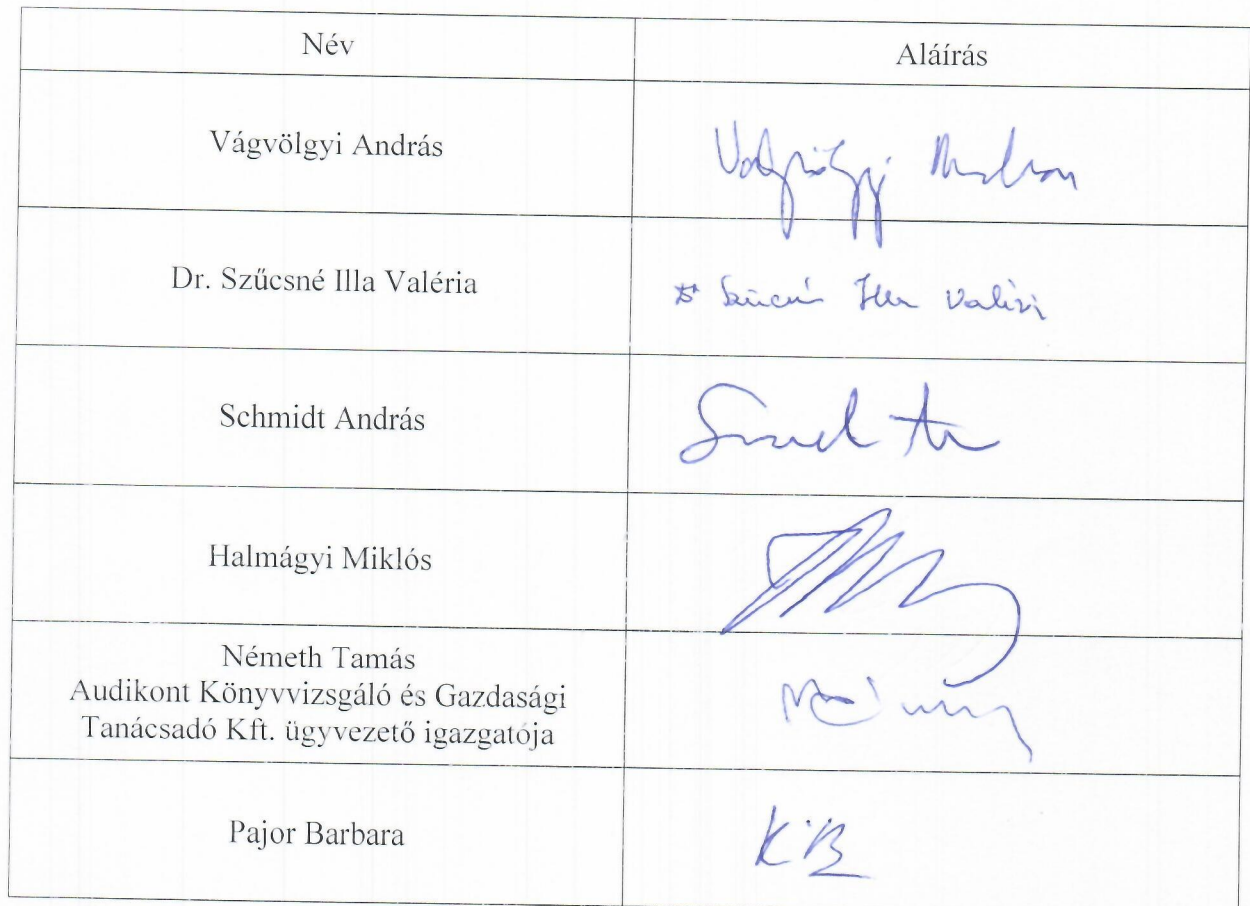 Név
Aláírás
Vágvölgyi András
Vágvölgyi András
Dr. Szűcsné Illa Valéria
Dr Szűcsné Illa Valéria
Schmidt András
Halmágyi Miklós
Németh Tamás
Audikont Könyvvizsgáló és Gazdasági
Tanácsadó Kft. ügyvezető igazgatója
Pajor Barbara